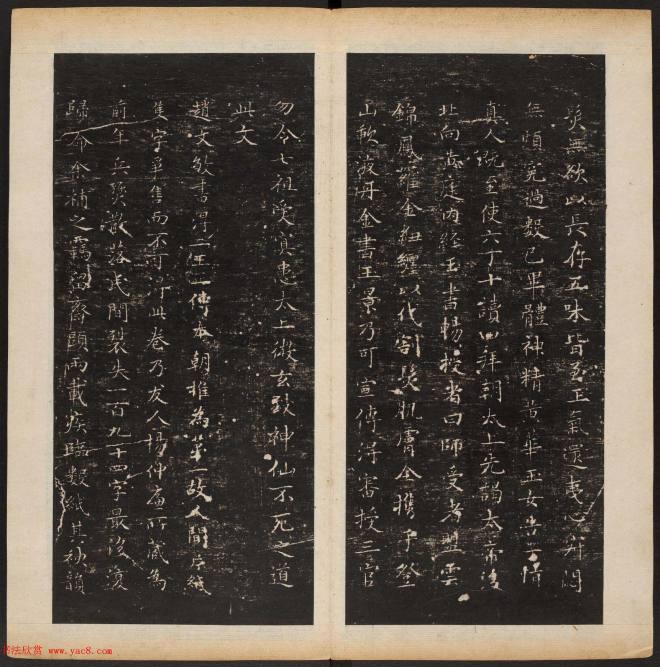 炎無欲以長存五味皆至正氣還夷心寂悶
無煩冤過數已畢體神精黃華玉女告子情
真人既至使六丁十讀四拜朝太上先謁太帝後
北向黃庭內經玉書暢授者曰師受者盟雲
錦鳳羅金鈕纏以代割髮肌膚全攜手登
山歃液丹金書玉景乃可宣傳得審授三官
勿令七祖受冥患太上微玄致神仙不死之道
此文
趙文敏書得二王一傳本朝推為第一故人間片紙
隻字爭售而不可得此卷乃友人楊仲所藏為
前年兵燹散落民間裂失一百九十四字最後復
歸命余補之羈留齋頭兩載疾臨數紙其秒韻
书法欣赏 www.yac8.com